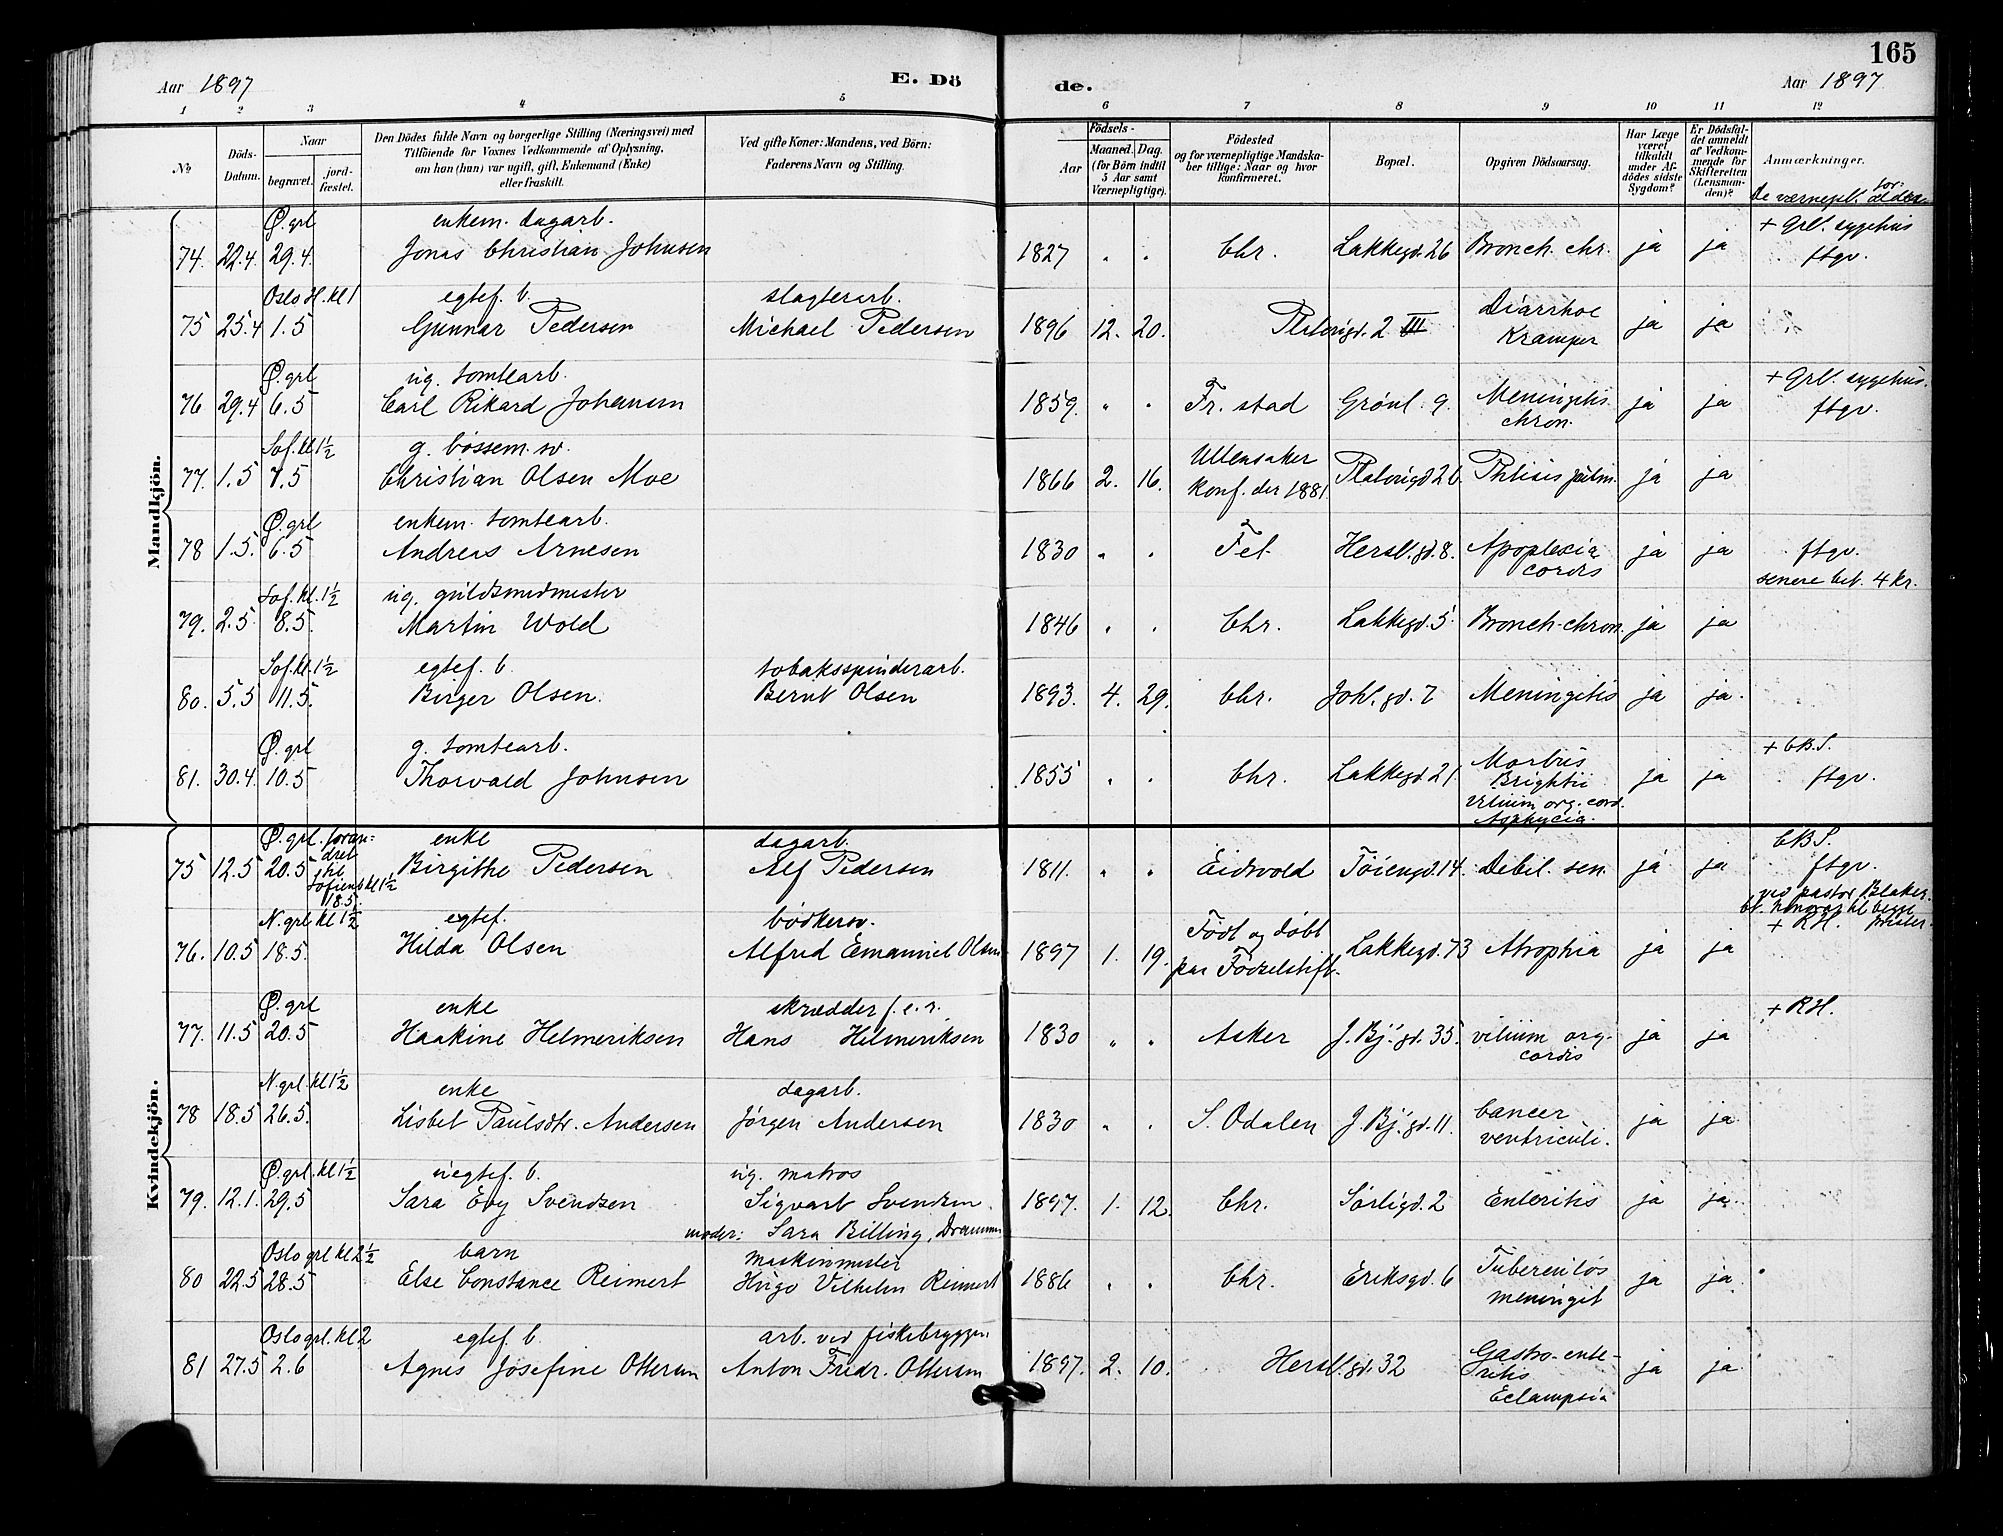 165
Aar 1897 E. Dö de. Aar 1897
1 2 3 4 5 6 7 8 9 10 11 12
No
Döds-Datum.
Naar
begravet. jord-fæstet.
Den Dödes fulde Navn og borgerlige Stilling (Næringsvei) med
Tilföiende for Voxnes Vedkommende af Oplysning,
om han (hun) var ugift, gift, Enkemand (Enke)
eller fraskilt.
Ved gifte Koner: Mandens, ved Börn:
Faderens Navn og Stilling.
Födsels-
Aar Maaned. Dag.
(for Börn indtil 5 Aar samt Værnepligtige).
Födested
og for værnepligtige Mandska-
ber tillige: Naar og hvor
konfirmeret.
Bopæl.
Opgiven Dödsaarsag.
Har Læge været tilkaldt under Afdödes sidste Sygdom?
Er Dödsfaldet anmeldt af Vedkommende for Skifteretten (Lensmanden)?
Anmærkninger.
De værnepl. for-ældre
Mandkjön.
Ø. grl enkem. dagarb. + Grl. sygehus
74. 22.4. 29.4. Jonas Christian Johnsen 1827 " " Chr. Lakkegd. 26 Bronch. chr. ja ja ftgv.
Oslo H. kl 1 egtef. b. slagterarb. Diarrhoe
75 25.4 1.5 Gunnar Pedersen Michael Pedersen 1896 12. 20. Platousgd. 2 III Kramper ja ja
Ø. grl ug. tomtearb. + Grl. sygehus.
76 29.4 6.5 Carl Rikard Johansen 1859. " " Fr. stad Grönl. 9. Meningitis chron. ja ja ftgv.
Sof. kl 1½ g. bössem. sv. Ullensaker
77. 1.5 7.5 Christian Olsen Moe 1866 2. 16. Konf. der 1881. Platousgd 26. Phtisis pulm. ja ja
Ø. grl enkem. tomtearb.
78 1.5. 6.5 Andreas Arnesen 1830 " " Fet Hersl. gd. 8. Apoplexia cordis ja ja ftgv.
senere bet. 4 kr.
Sof. kl. 1½ ug. guldsmedmester
79. 2.5. 8.5. Martin Wold 1846 " " Chr. Lakkegd. 5 Bronch. chron. ja ja
Sof. kl. 1½ egtef. b. tobaksspinderarb.
80. 5.5 11.5. Birger Olsen. Bernt Olsen 1893. 4. 29. Chr. Joh. gd. 7 Meningitis ja ja.
Ø. grl g. tomtearb. + CBS.
81. 30.4. 10.5 Thorvald Johnsen 1855 " " Chr. Lakkegd. 21. Morbus Brightii vitium org. cord. Asphycia. ja ja ftgv.
Kvindekjön.
Ø. grl. foran-dret til Sofienb kl 1½ 18.5. enke dagarb. CBS.
75 12.5 20.5 Birgithe Pedersen Alf Pedersen 1811. " " Eidsvold Töiengd. 14. Debil. sen. ja ja ftgv.
ved pastor Blaker.
bt. honorar til begge prester.
N. grl kl 1½ egtef. bödkersv. + RH.
76. 10.5 18.5. Hilda Olsen Alfred Emanuel Olsen 1897 1. 19. Födt og döbt paa Födselstift. Lakkegd. 73 Atrophia ja ja
Ø. grl enke skrædder f. e. r. + RH.
77. 11.5 20.5 Haakine Helmeriksen Hans Helmeriksen 1830 " " Asker J. Bj. gd. 35. vitium org. cordis ja ja
N. grl. kl 1½ enke dagarb.
78 18.5 26.5. Lisbet Paulsdtr. Andersen Jörgen Andersen 1830 " " S. Odalen J. Bj. gd. 11. Cancer ventriculi. ja ja.
Ø. grl. kl 1½ uegtef. b. ug. matros
79. 12.1. 29.5 Sara Evy Svendsen Sigvart Svendsen. 1897. 1. 12. Chr. Sörligd. 2 Enteritis ja ja.
moder: Sara Billing, Drammen
Oslo grl kl 2½ barn maskinmester
80 22.5 28.5 Else Constance Reimert Hugo Vilhelm Reimert 1886 " " Chr. Eriksgd. 6 Tuberculös meningit ja ja.
Oslo grl. kl. 2 egtef b. arb. ved fiskebryggen
81 27.5 2.6 Agnes Josefine Ottersen Anton Fredr. Ottersen 1897. 2. 10. Hersl. gd. 32 Gastro-ente-ritis Eclampsia ja ja.